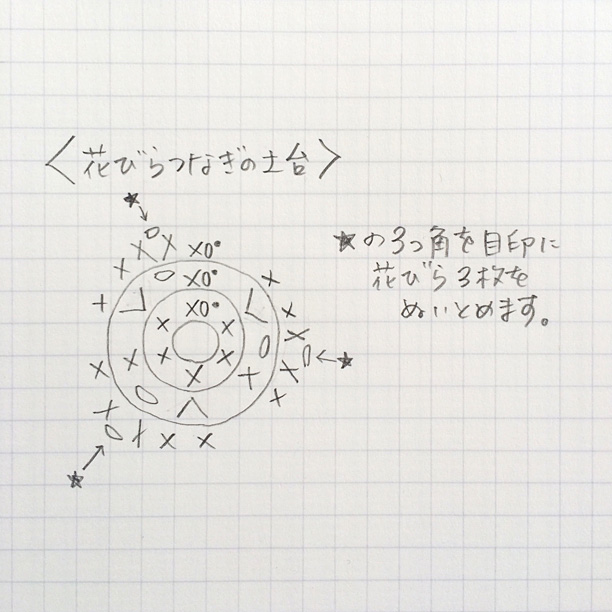 〈花びらつなぎの土台〉
★の3つ角を目印に
花びら3枚を
ぬいとめます。